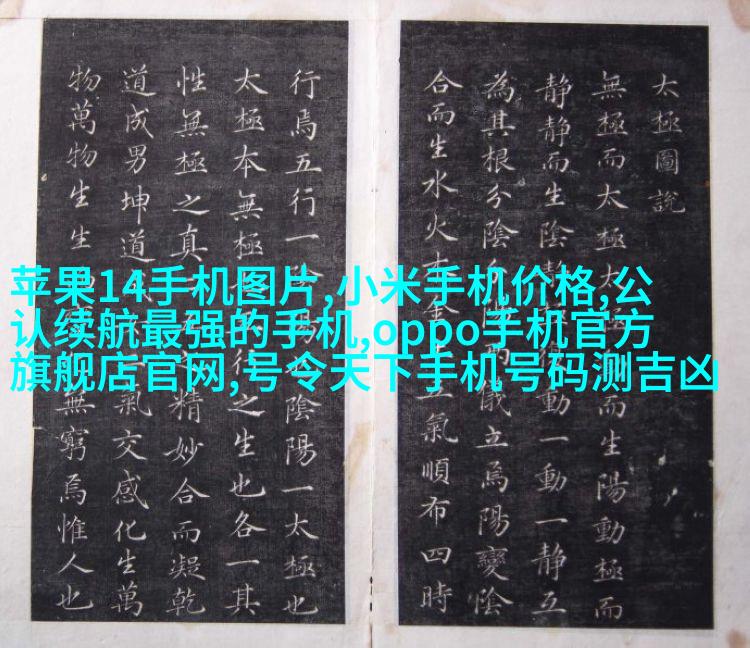 太極圖說
無極而太極太極而生陽動極而
靜靜而生陰靜極復動一動一靜互
為其根分陰分陽兩儀立焉陽變陰
合而生水火木金土五氣順布四時
行焉五行一陰陽也陰陽一太極也
太極本無極也五行之生也各一其
性無極之真二五之精妙合而凝乾
道成男坤道成氣交感化生萬
物萬物生生無窮焉惟人也
苹果14手机图片,小米手机价格,公
认续航最强的手机,oppo手机官方
旗舰店官网,号令天下手机号码测吉凶